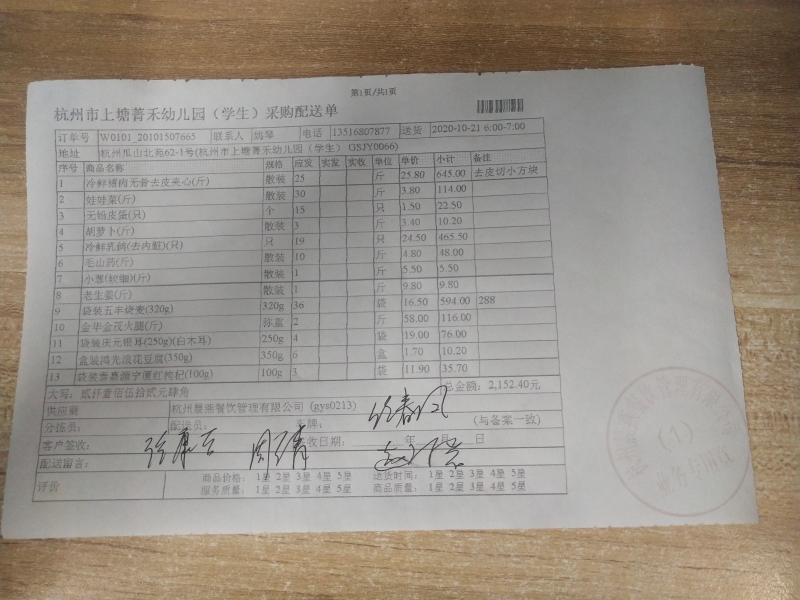 第1页/共1页
杭州市上塘菁禾幼儿园（学生）采购配送单
订单号 W0101_20101507665 联系人 姚琴 电话 13516807877 送货 2020-10-21 6:00-7:00
地址 杭州瓜山北苑62-1号(杭州市上塘菁禾幼儿园（学生） GSJY0066)
序号 商品名称 规格 应发 实发 实收 单位 单价 小计 备注
1 冷鲜猪肉无骨去皮夹心(斤) 散装 25 斤 25.80 645.00 去皮切小方块
2 娃娃菜(斤) 散装 30 斤 3.80 114.00
3 无铅皮蛋(只) 个 15 只 1.50 22.50
4 胡萝卜(斤) 散装 3 斤 3.40 10.20
5 冷鲜乳鸽(去内脏)(只) 只 19 只 24.50 465.50
6 毛山药(斤) 散装 10 斤 4.80 48.00
7 小葱(较细)(斤) 散装 1 斤 5.50 5.50
8 老生姜(斤) 散装 1 斤 9.80 9.80
9 袋装五丰烧麦(320g) 320g 36 袋 16.50 594.00 288
10 金华金茂火腿(斤) 称重 2 斤 58.00 116.00
11 袋装庆元银耳(250g)(白木耳) 250g 4 袋 19.00 76.00
12 盒装鸿光浪花豆腐(350g) 350g 6 盒 1.70 10.20
13 袋装泰嘉源宁夏红枸杞(100g) 100g 3 袋 11.90 35.70
大写: 贰仟壹佰伍拾贰元肆角 总金额: 2,152.40元
供应商 杭州晨燕餐饮管理有限公司 (gys0213)
分拣员: 配送员: 车牌: (与备案一致)
客户签收: 收日期: 年 月 日
配送留言:
评价 商品价格: 1星 2星 3星 4星 5星 送货时间: 1星 2星 3星 4星 5星
服务质量: 1星 2星 3星 4星 5星 商品质量: 1星 2星 3星 4星 5星
(1)